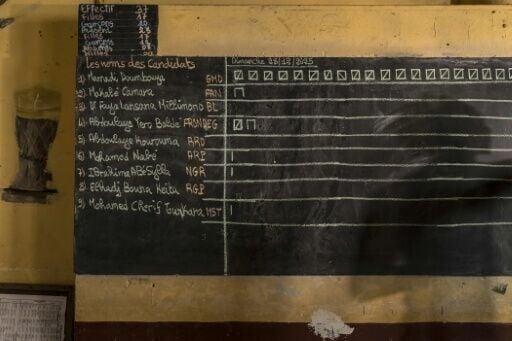 Effectif 27
Filles 17
Garçons 10
Présent 25
Filles 17
Garçons 08
Filles
Les noms des Candidats
Dimanche 28/12/2025
1) Mamadi Doumbouya GMD
2) Makalé Camara FAN
3) Dr Faya Lansana Millimono BL
4) Abdoulaye Yero Baldé FRONDEG
5) Abdoulaye Kourouma RRD
6) Mohamed Nabé ARP
7) Ibrahima Abé Sylla NGR
8) Elhadj Bouna Keita RGP
9) Mohamed Chérif Tounkara MST